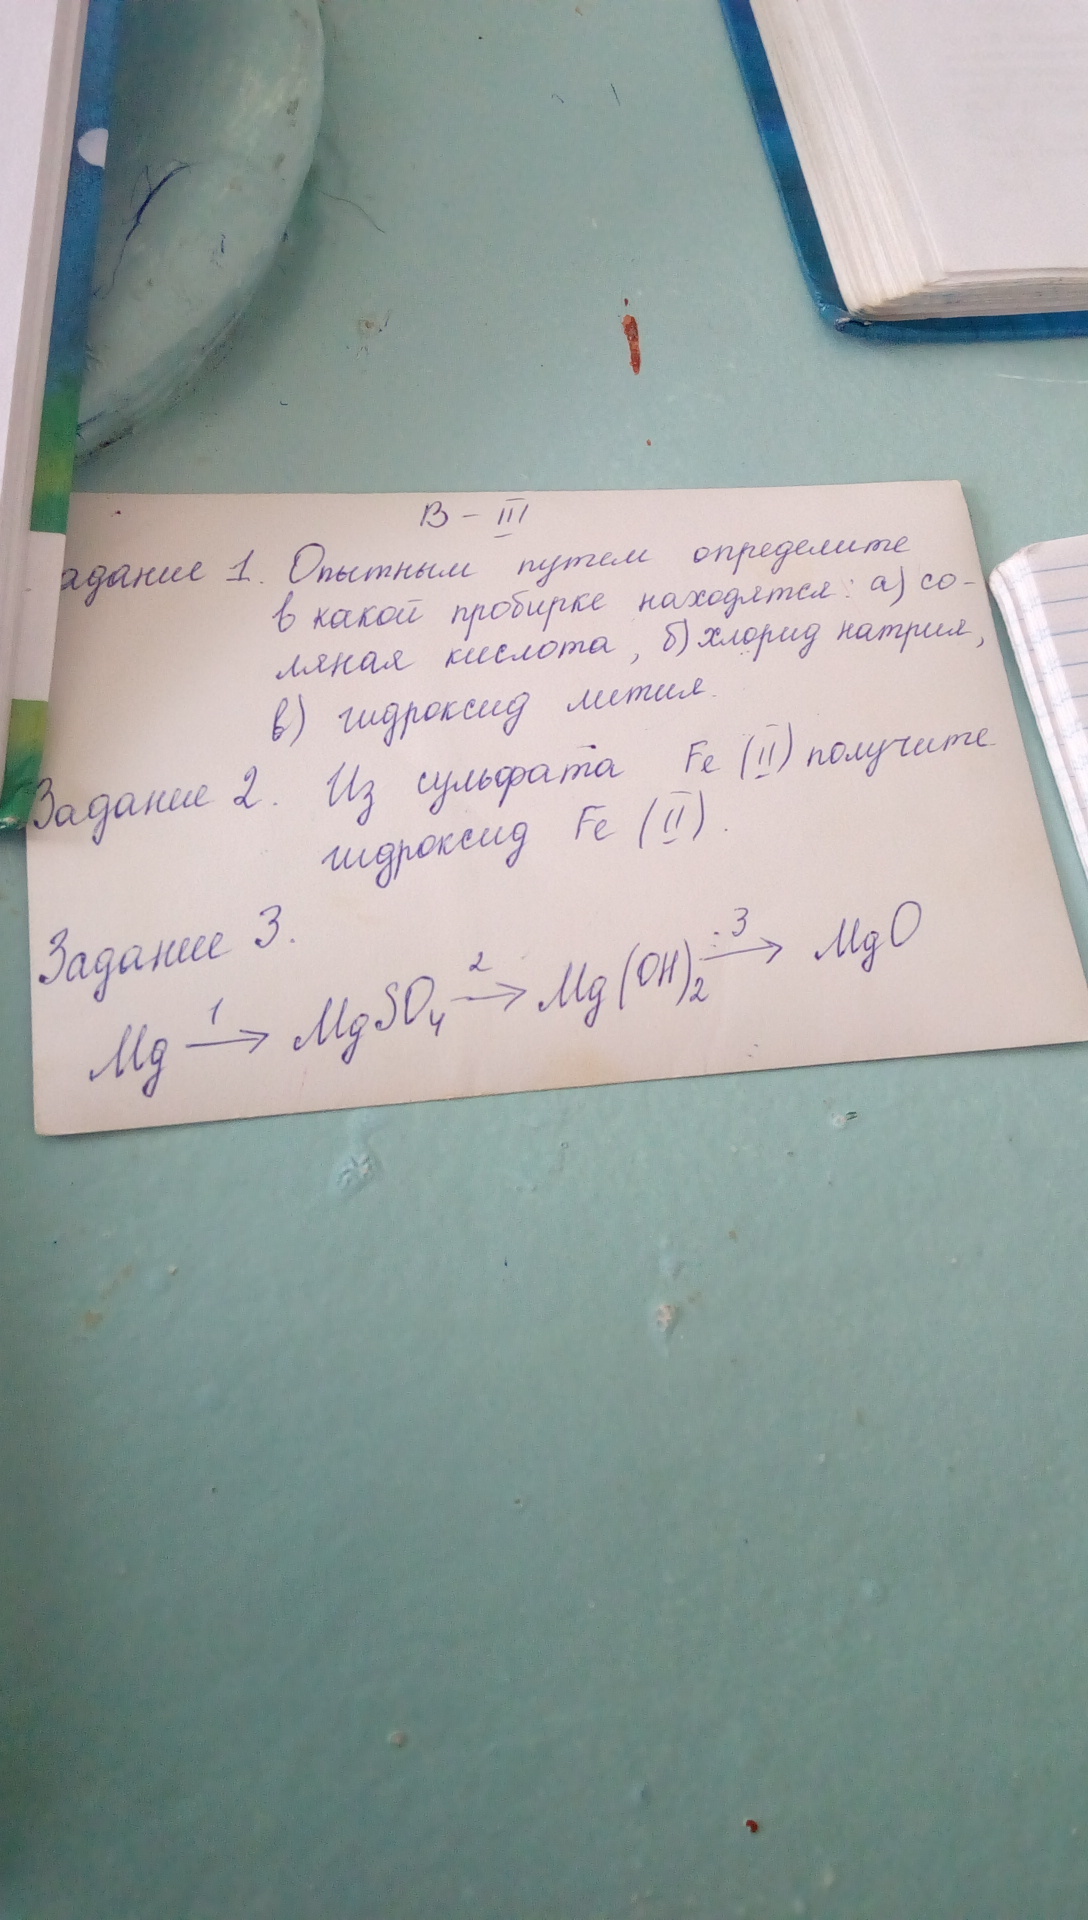 В - III
адание 1. Опытным путем определите
в какой пробирке находятся: а) со-
ляная кислота, б) хлорид натрия,
в) гидроксид лития.
Задание 2. Из сульфата Fe (II) получите
гидроксид Fe (II).
Задание 3.
Mg →1 MgSO₄ →2 Mg(OH)₂ →3 MgO